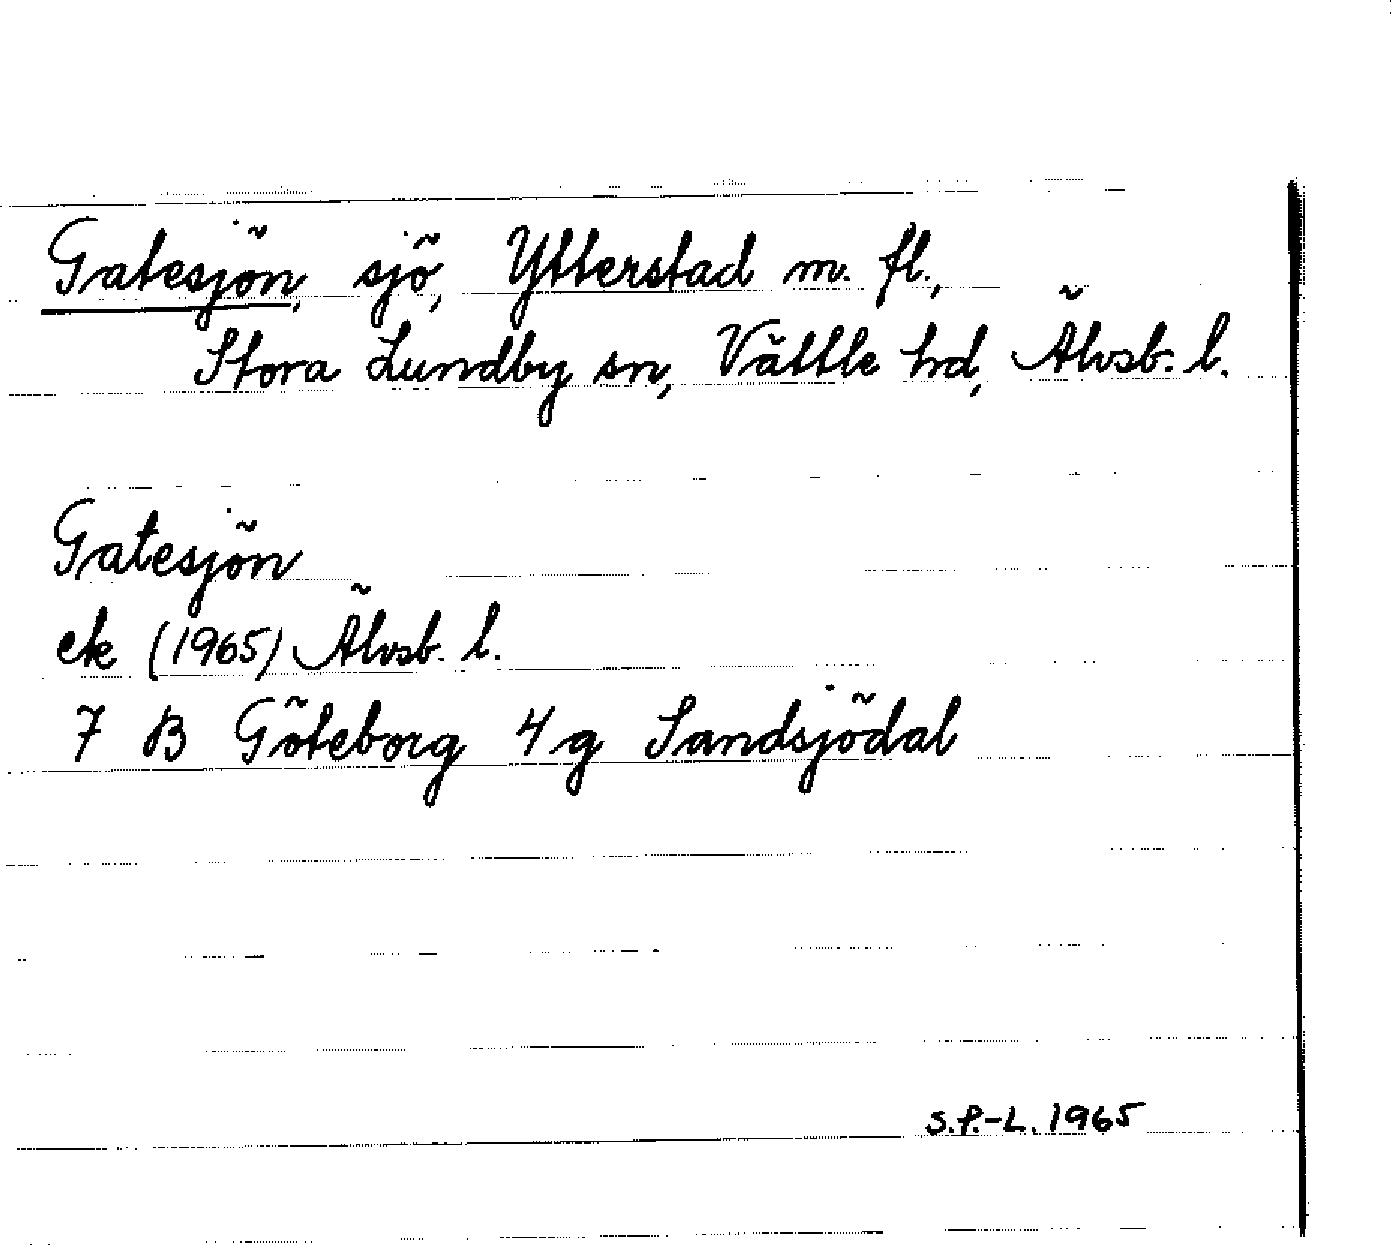 Gatesjön, sjö, Ytterstad m. fl.,
Stora Lundby sn, Vättle hd, Älvsb. l.
Gatesjön
ek (1965) Älvsb. l.
7 B Göteborg 4g Sandsjödal
S.P.-L. 1965